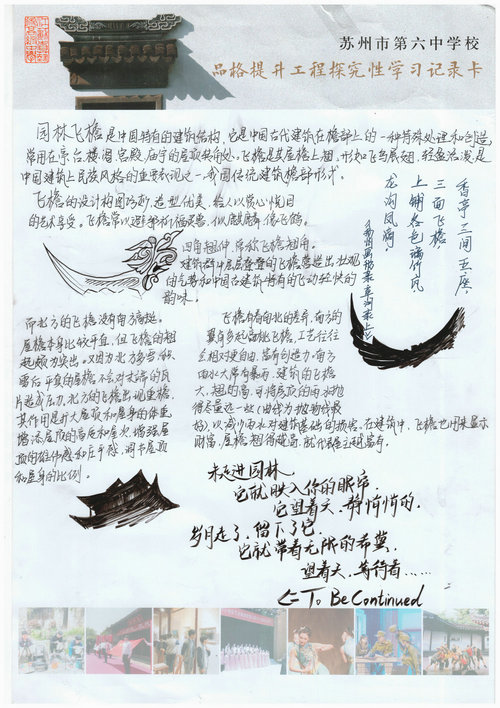 苏州市第六中学校
品格提升工程探究性学习记录卡
园林飞檐是中国特有的建筑结构,它是中国古代建筑在檐部上的一种特殊处理和创造
常用在亭台、楼阁、宫殿、庙宇的屋顶转角处。飞檐是其屋檐上翘,形如飞鸟展翅,轻盈活泼,是
中国建筑上民族风格的重要表现之一。我国传统建筑檐部形式。
飞檐的设计构图巧妙,造型优美,给人以赏心悦目
的艺术享受。飞檐常以避邪祈福灵兽,似麒麟,像飞鹤。
四角翘伸,俗称飞檐翘角。
建筑群中层层叠叠的飞檐营造出壮观
的气势和中国古建筑特有的飞动轻快的
韵味。
香亭三间五座,
三面飞檐,
上铺各色琉璃竹瓦
龙沟凤滴。
而北方的飞檐没有南方高挑。
屋檐本身比较平直,但飞檐的翘
起颇为突出。又因为北方多雪,积
雪后平直的屋檐,不会对末端的瓦
片造成压力,北方的飞檐出现重檐,
其作用是扩大屋顶和屋身的体量
增添屋顶的高度和层次,增强屋
顶的雄伟感和庄严感,调节屋顶
和屋身的比例。
飞檐有南北的差异,南方的
翼角多起高挑飞檐,工艺往往
雨水大常有暴雨,建筑的飞檐
大,翘的高,可将屋顶的雨水抛
得尽量远一些(曲线为抛物线最
格),以减少雨水对建筑基础的损坏。在建筑中,飞檐也用来显示
财富,屋檐翘得越高,就代表主越富有。
未走进园林
它就映入你的眼帘,
它望着天,静悄悄的,
岁月走了,留下了它,
它就带着无限的希冀,
望着天,等待着……
To Be Continued